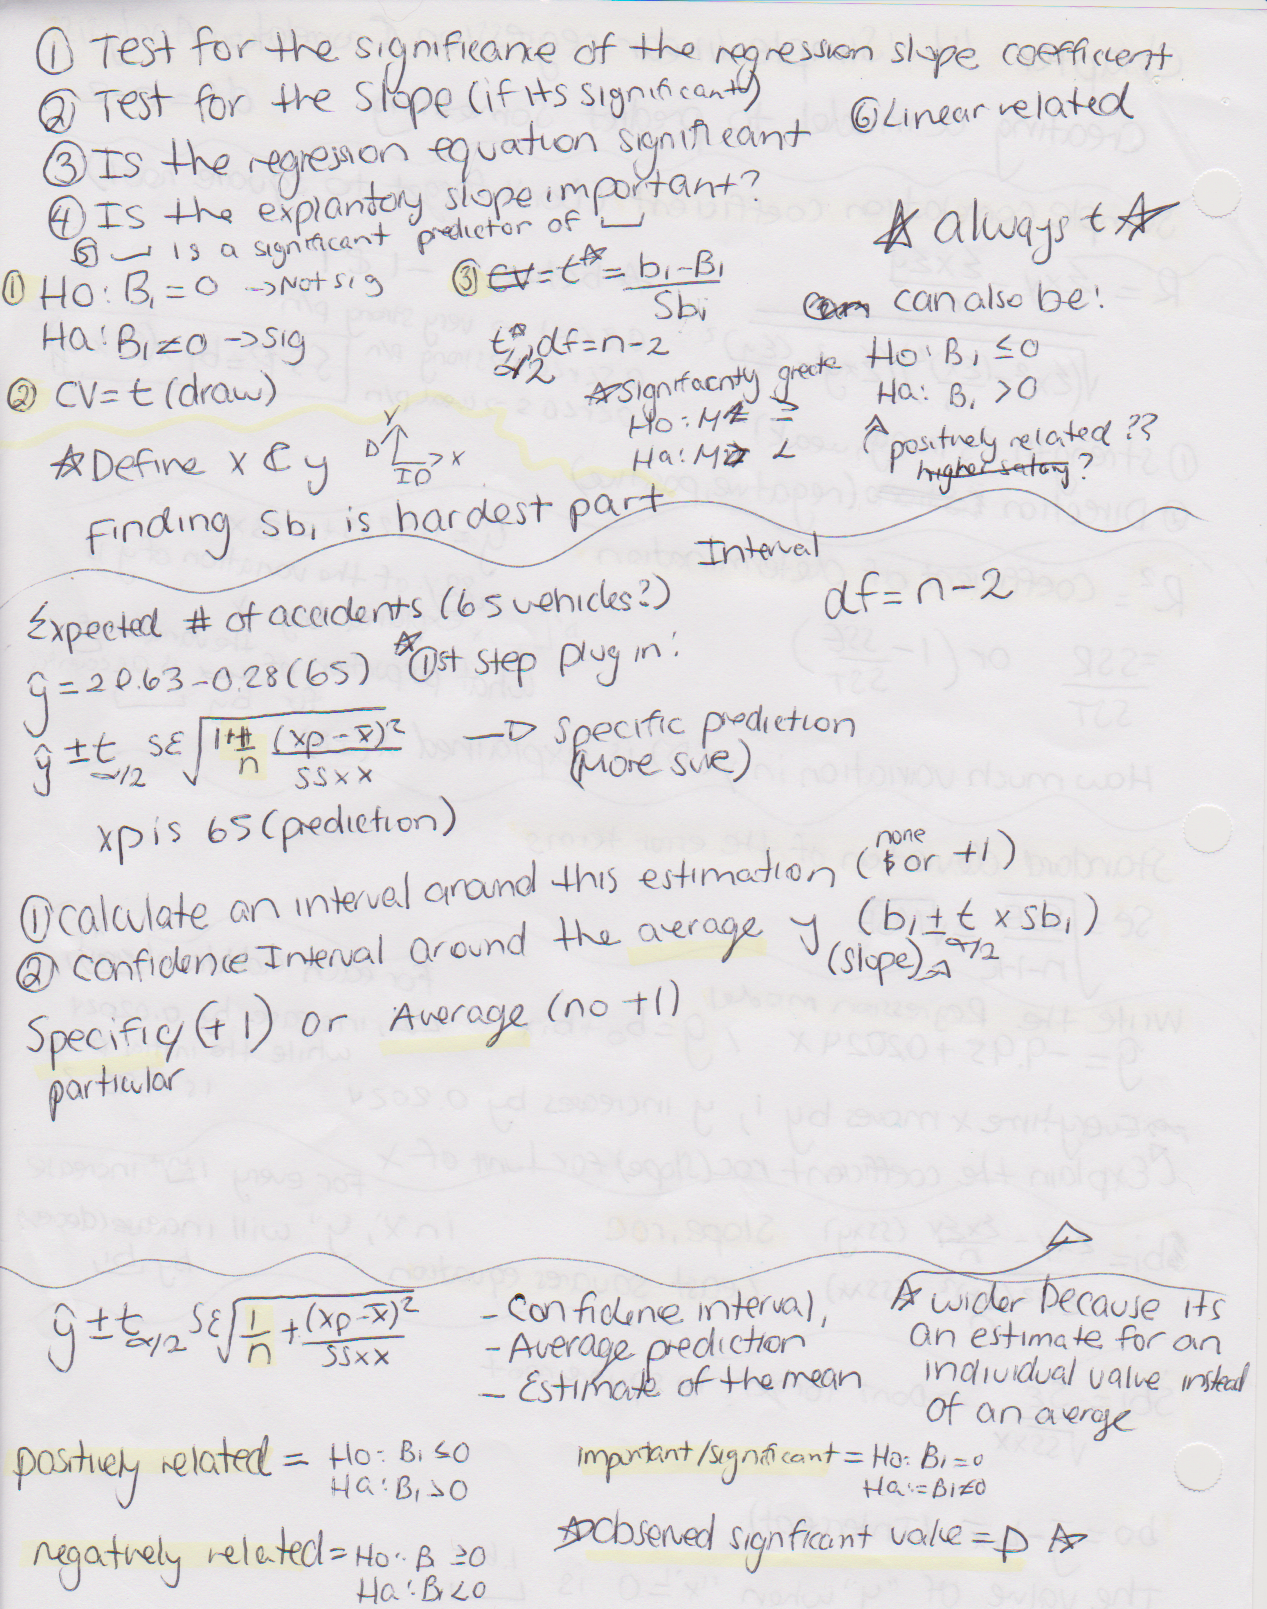 ① Test for the significance of the regression slope coefficient
② Test for the slope (if its significant)
⑥ Linear related
③ Is the regression equation significant
④ Is the explantory slope important?
⑤ __ is a significant predictor of __
☆ always t ☆
① Ho: B₁ = 0 → Not sig
Ha: B₁ ≠ 0 → sig
② CV = t (draw)
③ CV = t* = b₁ - B₁ / Sb₁
t* α/2, df = n-2
can also be:
Ho: B₁ ≤ 0
Ha: B₁ > 0
↑ positively related??
higher salary?
☆ Significantly greate
Ho: M ≥
Ha: M <
☆ Define x & y
D Y
ID → x
Finding Sb₁ is hardest part
Interval
df = n-2
Expected # of accidents (65 vehicles?)
ŷ = 20.63 - 0.28(65) ☆ ①st step plug in:
ŷ ± t α/2 Sε √ 1 + 1/n (xp - x̄)² / SSxx → Specific prediction
(More sure)
xp is 65 (prediction)
① Calculate an interval around this estimation (none or +1)
② Confidence Interval around the average y (b₁ ± t α/2 x Sb₁)
(slope)
Specific/ (+1) or Average (no +1)
particular
ŷ ± t α/2 Sε √ 1/n + (xp - x̄)² / SSxx
- Confidence interval,
- Average prediction
- Estimate of the mean
☆ wider because its
an estimate for an
individual value instead
of an average
positively related = Ho: B₁ ≤ 0
Ha: B₁ > 0
important/significant = Ho: B₁ = 0
Ha: = B₁ ≠ 0
negatively related = Ho: B ≥ 0
Ha: B₁ < 0
☆ Observed signficant value = p ☆